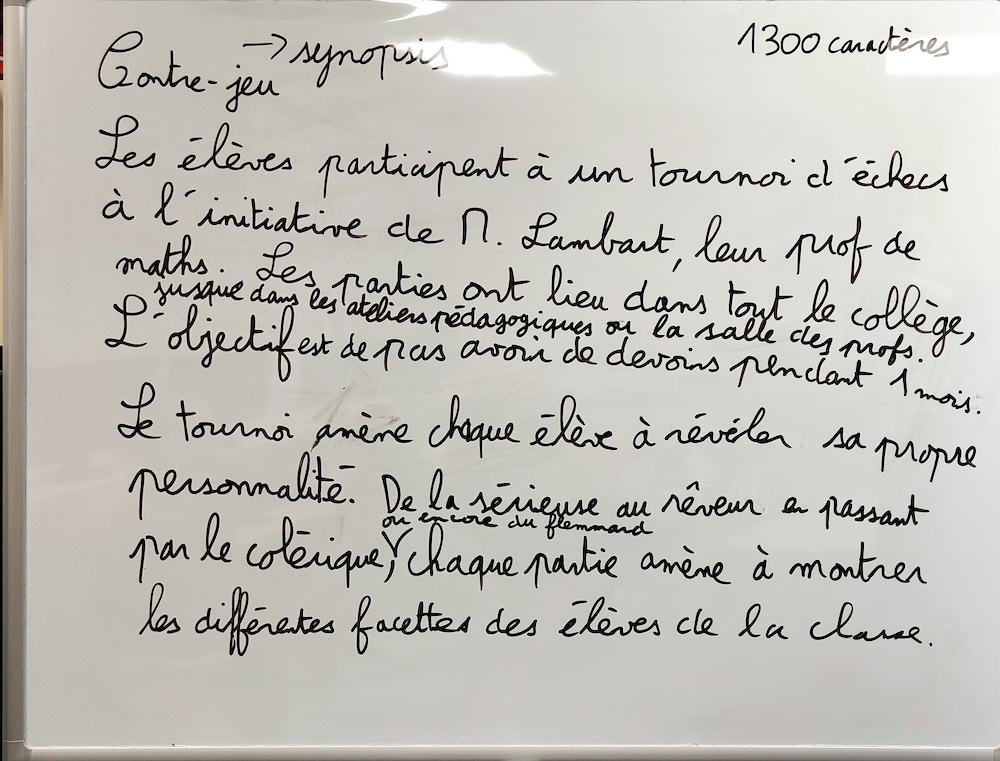 → synopsis
1300 caractères
Contre-jeu
Les élèves participent à un tournoi d'échecs
à l'initiative de M. Lambart, leur prof de
maths. Les parties ont lieu dans tout le collège,
jusque dans les ateliers pédagogiques ou la salle des profs.
L'objectif est de pas avoir de devoirs pendant 1 mois.
Le tournoi amène chaque élève à révéler sa propre
personnalité. De la sérieuse au rêveur en passant
ou encore du flemmard
par le colérique, chaque partie amène à montrer
les différentes facettes des élèves de la classe.